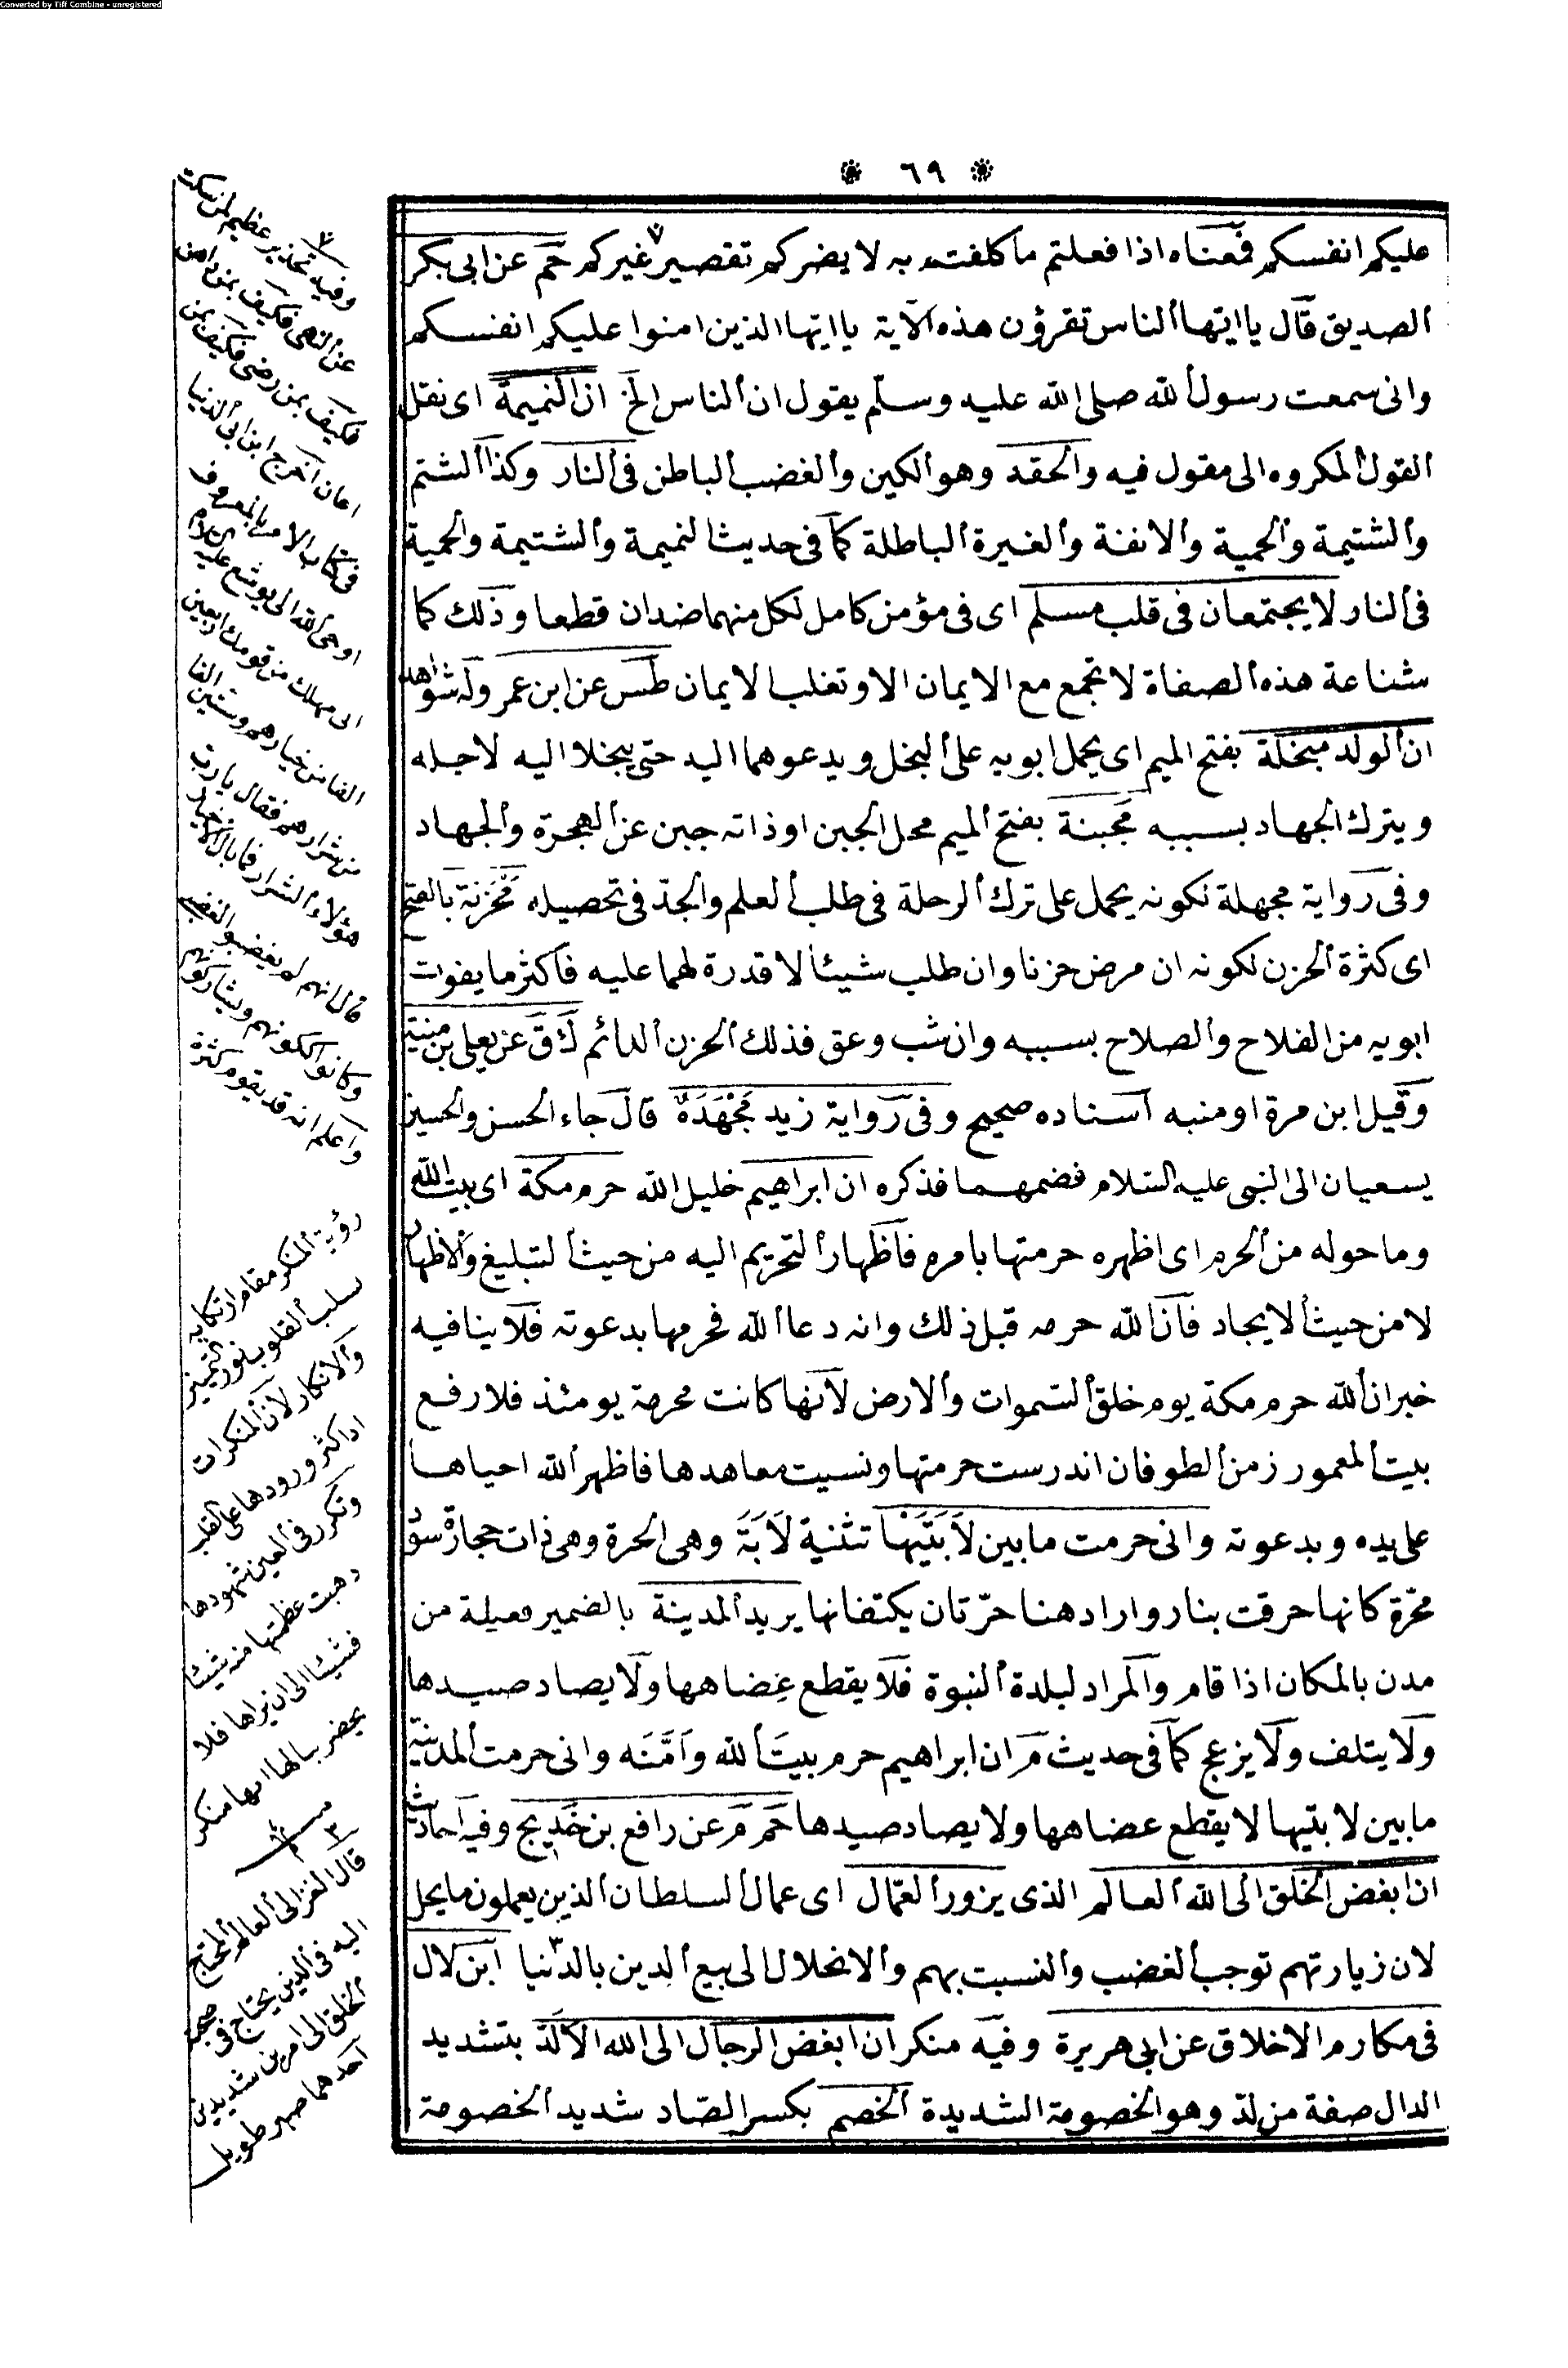 Converted by Tiff Combine - unregistered
٦٩
عليكم انفسكم فمعناه اذا فعلتم ما كلفتم به لا يضركم تقصير غيركم حم عن ابى بكر
الصديق قال يا ايتها الناس تقرؤن هذه الآية يا ايتها الذين امنوا عليكم انفسكم
وانى سمعت رسول الله صلى الله عليه وسلم يقول ان الناس الخ ان النميمة اى نقل
القول المكروه الى مقول فيه والحقد وهو الكين والغضب الباطن فى النار وكذا الشتم
والشتيمة والحمية والانفة والغيرة الباطلة كما فى حديث النميمة والشتيمة والحمية
فى النار لا يجتمعان فى قلب مسلم اى فى مؤمن كامل لكل منهما ضدان قطعا وذلك كما
شناعة هذه الصفاة لا تجمع مع الايمان الا وتغلب الايمان طس عن ابن عمر وله شواهد
ان الولد مبخلة بفتح الميم اى يحمل ابويه على البخل ويدعوهما اليه حتى يبخلا اليه لاجله
ويترك الجهاد بسببه مجبنة بفتح الميم محل الجبن او ذاته جبن عن الهجرة والجهاد
وفى رواية مجهلة لكونه يحمل على ترك الرحلة فى طلب العلم والجد فى تحصيله مَحْزَنة بالفتح
اى كثرة الحزن لكونه ان مرض حزنا وان طلب شيئا لا قدرة لهما عليه فاكثر ما يفوت
ابويه من الفلاح والصلاح بسببه وان شب وعق فذلك الحزن الدائم ك ق عن يعلى بن منية
وقيل ابن مرة او منبه اسناده صحيح وفى رواية زيد مَجْهَدَة قال جاء الحسن والحسين
يسعيان الى النبى عليه السلام فضمهما فذكره ان ابراهيم خليل الله حرم مكة اى بيت الله
وما حوله من الحرم اى اظهره حرمتها بامره فاظهار التحريم اليه من حيث التبليغ والاظهار
لا من حيث الايجاد فان الله حرمه قبل ذلك وانه دعا الله فحرمها بدعوته فلا ينافيه
خبر ان الله حرم مكة يوم خلق السموات والارض لانها كانت محرمة يومئذ فلا رفع
بيت المعمور زمن الطوفان اندرست حرمتها ونسيت معاهدها فاظهر الله احياها
على يده وبدعوته وانى حرمت ما بين لَابَتَيْها تثنية لَابَة وهى الحرة وهى ذات حجارة سود
محرة كانها حرقت بنار واراد هنا حرّتان يكتفانها يريد المدينة بالضمير فعيلة من
مدن بالمكان اذا قام والمراد لبلدة النبوة فلا يقطع عِضاهها ولا يصاد صيدها
ولا يتلف ولا يزعج كما فى حديث م ان ابراهيم حرم بيت الله وَاَمَّنَه وانى حرمت المدينة
ما بين لابتيها لا يقطع عضاهها ولا يصاد صيدها حم م عن رافع بن خَديج وفيه احاديث
ان ابغض الخلق الى الله العالم الذى يزور العمّال اى عمال السلطان الذين يعملون ما يحل
لان زيارتهم توجب الغضب والنسبت بهم والانحلال الى بيع الدين بالدّنيا ابن لال
فى مكارم الاخلاق عن ابى هريرة وفيه منكر ان ابغض الرجال الى الله الالدّ بتشديد
الدال صفة من لدّ وهو الخصومة الشديدة الخصم بكسر الصّاد شديد الخصومة
وفيه تحذير عظيم لمن سكت
عن النهى فكيف بمن داهن
فكيف بمن رضى فكيف بمن
اعان اخرج ابن ابى الدنيا
فى كتاب الامر بالمعروف
اوحى الله الى يوشع عليه السلام
انى مهلك من قومك اربعين
الفا من خيارهم وستين الفا
من شرارهم فقال يا رب
هؤلاء الشرار فما بال الاخيار
قال انهم لم يغضبوا لغضبى
وكانوا يواكلونهم ويشاربونهم
واعلم انه قد يقوم كثرة
رؤية المنكر مقام ارتكابه
سلب القلوب نور التمييز
والانكار لان المنكرات
اذا كثر ورودها على القلب
وتكرر فى العين شهودها
ذهبت عظمتها منه شيئا
فشيئا الى ان يراها فلا
يخطر ببالها انها منكر
٣
قال الغزالى العالم المحتاج
اليه فى الدين يحتاج فى صحبة
الخلق الى امرين شديدين
احدهما صبر طويل